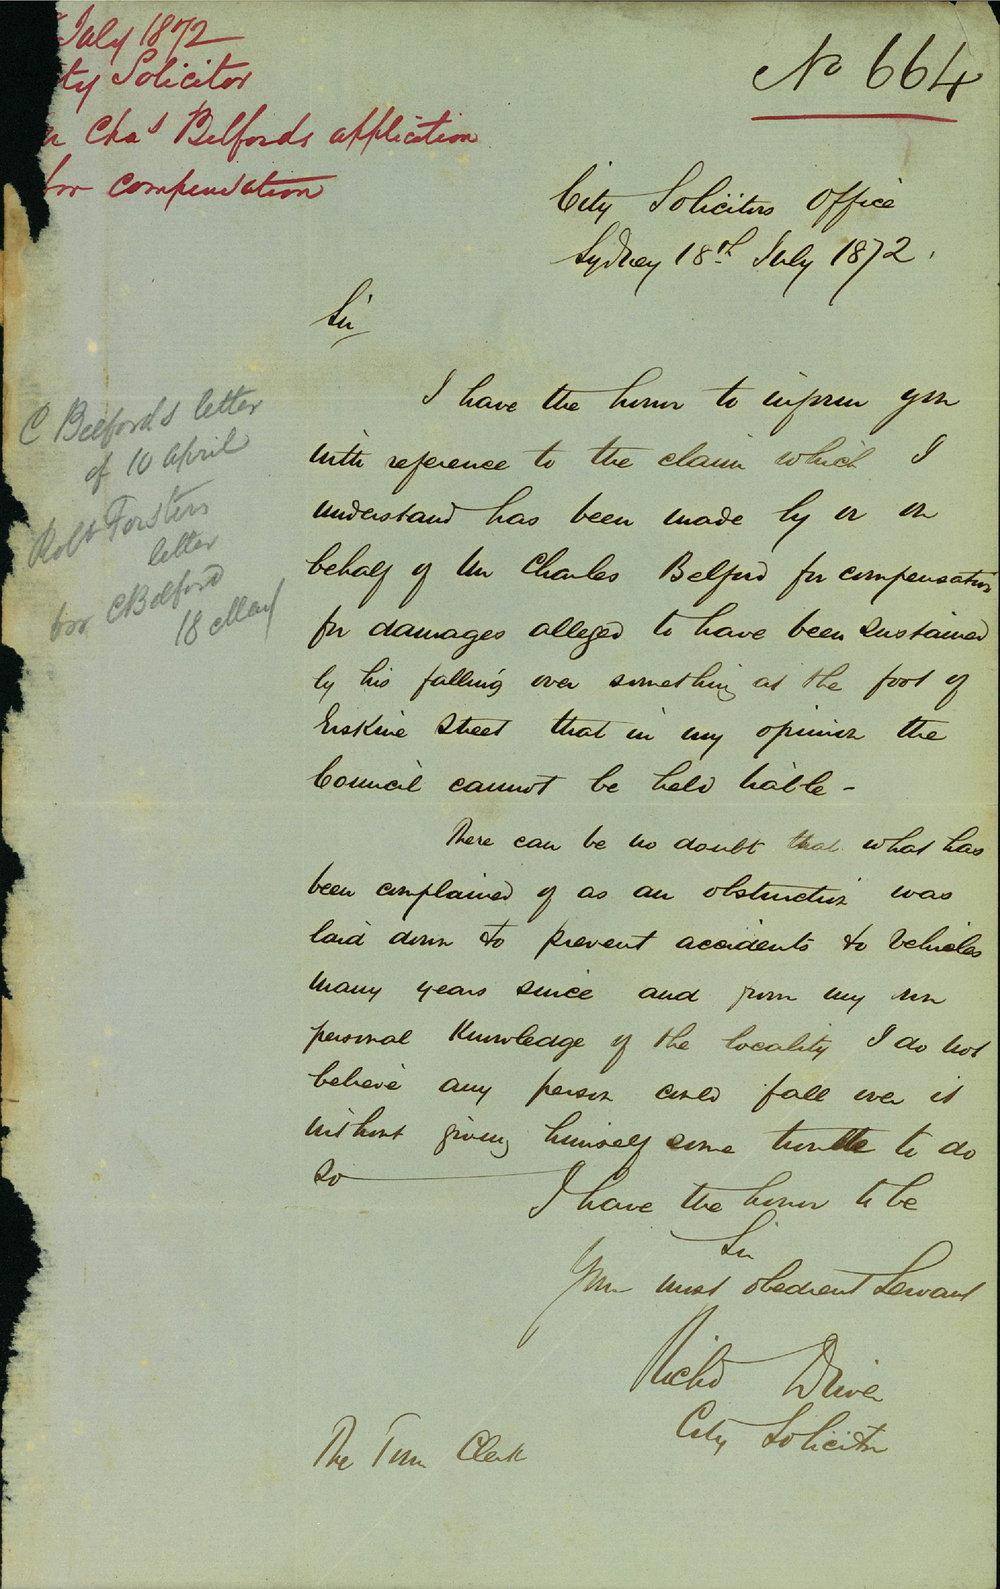 July 1872
ty Solicitor
n Chas Belfords application
for compensation
No 664
City Solicitors Office
Sydney 18th July 1872.
Sir
C Belfords letter
of 10 April
Robt Forsters
letter
for C Belford
18 May
I have the honor to inform you
with reference to the claim which I
understand has been made by or on
behalf of Mr Charles Belford for compensation
for damages alleged to have been sustained
by his falling over something at the foot of
Erskine Street that in my opinion the
Council cannot be held liable -
There can be no doubt that what has
been complained of as an obstruction was
laid down to prevent accidents to Vehicles
many years since and from my own
personal Knowledge of the locality I do not
believe any person could fall over it
without giving himself some trouble to do
so
I have the honor to be
Sir
Your most obedient Servant
Richd Driver
City Solicitor
The Town Clerk